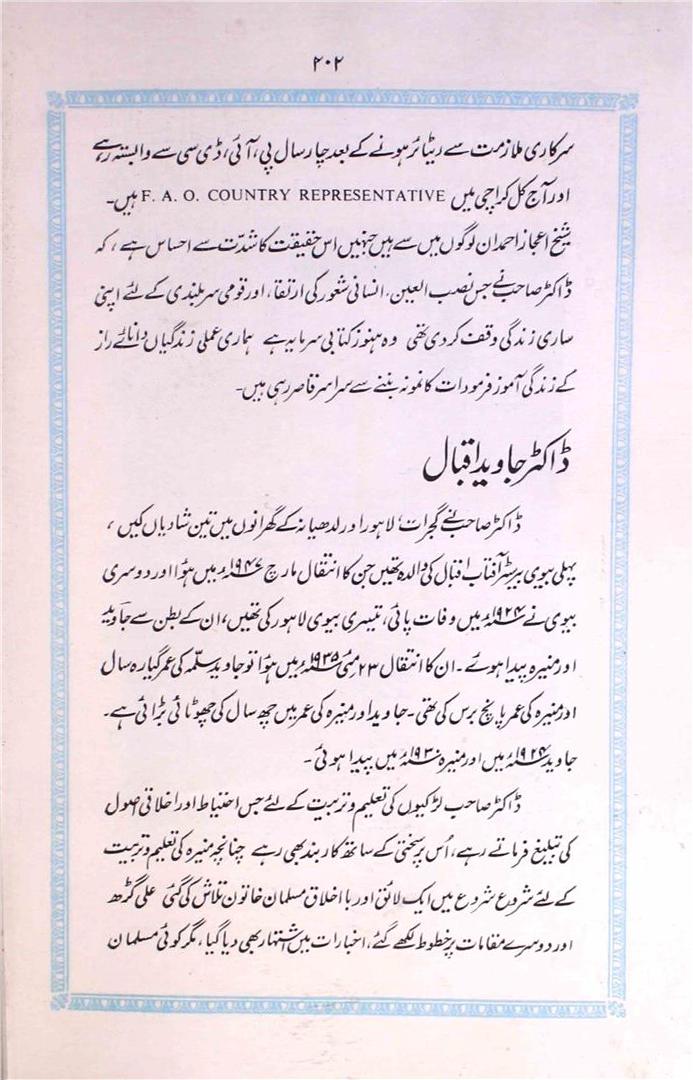 ۲۰۲
سرکاری ملازمت سے ریٹائر ہونے کے بعد چار سال پی، آئی، ڈی سی سے وابستہ رہے
اور آج کل کراچی میں F. A. O. COUNTRY REPRESENTATIVE ہیں۔
شیخ اعجاز احمد ان لوگوں میں سے ہیں جنہیں اس حقیقت کا شدّت سے احساس ہے، کہ
ڈاکٹر صاحب نے جس نصب العین، انسانی شعور کی ارتقا، اور قومی سربلندی کے لئے اپنی
ساری زندگی وقف کر دی تھی وہ ہنوز کتابی سرمایہ ہے ہماری عملی زندگیاں دانائے راز
کے زندگی آموز فرمودات کا نمونہ بننے سے سراسر قاصر رہی ہیں۔
ڈاکٹر جاوید اقبال
ڈاکٹر صاحب نے گجرات، لاہور اور لدھیانہ کے گھرانوں میں تین شادیاں کیں،
پہلی بیوی بیرسٹر آفتاب اقبال کی والدہ تھیں جن کا انتقال مارچ ۱۹۴۷ء میں ہؤا اور دوسری
بیوی نے ۱۹۲۴ء میں وفات پائی، تیسری بیوی لاہور کی تھیں، ان کے بطن سے جاوید
اور منیرہ پیدا ہوئے۔ ان کا انتقال ۲۳ مئی ۱۹۳۵ء میں ہؤا تو جاوید سلّمہ کی عمر گیارہ سال
اور منیرہ کی عمر پانچ برس کی تھی۔ جاوید اور منیرہ کی عمر میں چھ سال کی چھوٹائی بڑائی ہے۔
جاوید ۱۹۲۴ء میں اور منیرہ ۱۹۳۰ء میں پیدا ہوئی۔
ڈاکٹر صاحب لڑکیوں کی تعلیم و تربیت کے لئے جس احتیاط اور اخلاقی اصول
کی تبلیغ فرماتے رہے، اُس پر سختی کے ساتھ کار بند بھی رہے چنانچہ منیرہ کی تعلیم و تربیت
کے لئے شروع شروع میں ایک لائق اور با اخلاق مسلمان خاتون تلاش کی گئی علی گڑھ
اور دوسرے مقامات پر خطوط لکھے گئے، اخبارات میں اشتہار بھی دیا گیا، مگر کوئی مسلمان